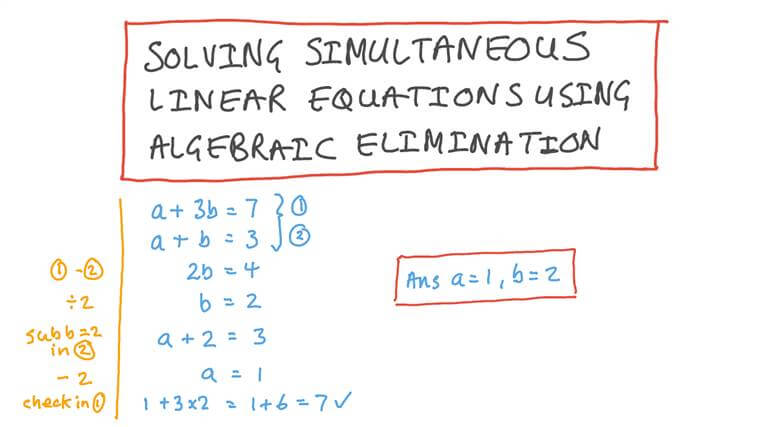 SOLVING SIMULTANEOUS
LINEAR EQUATIONS USING
ALGEBRAIC ELIMINATION
a + 3b = 7 } ①
a + b = 3 ②
① - ② 2b = 4
÷2 b = 2
sub b = 2
in ② a + 2 = 3
- 2 a = 1
check in ① 1 + 3 × 2 = 1 + 6 = 7 ✓
Ans a = 1, b = 2